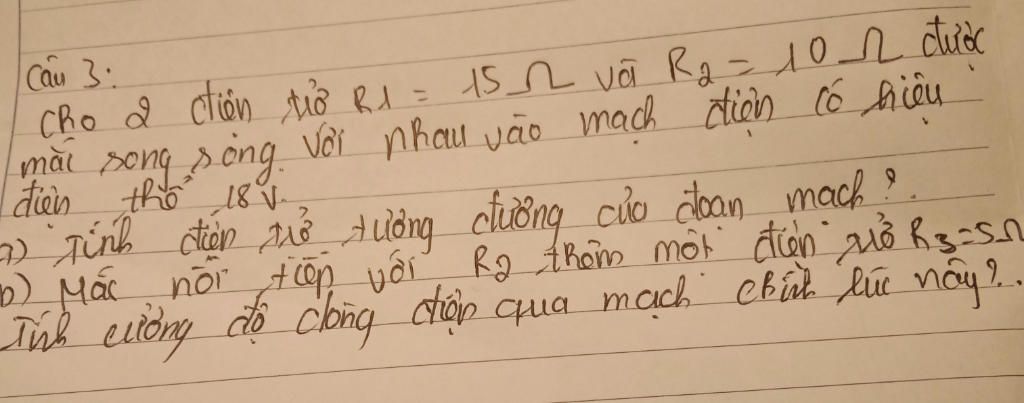 Câu 3:
Cho 2 điện trở R1 = 15 Ω và R2 = 10 Ω được
mắc song song với nhau vào mạch điện có hiệu
điện thế 18 V.
a) Tính điện trở tương đương của đoạn mạch?
b) Mắc nối tiếp với R2 thêm một điện trở R3=5Ω
Tính cường độ dòng điện qua mạch chính lúc này?.